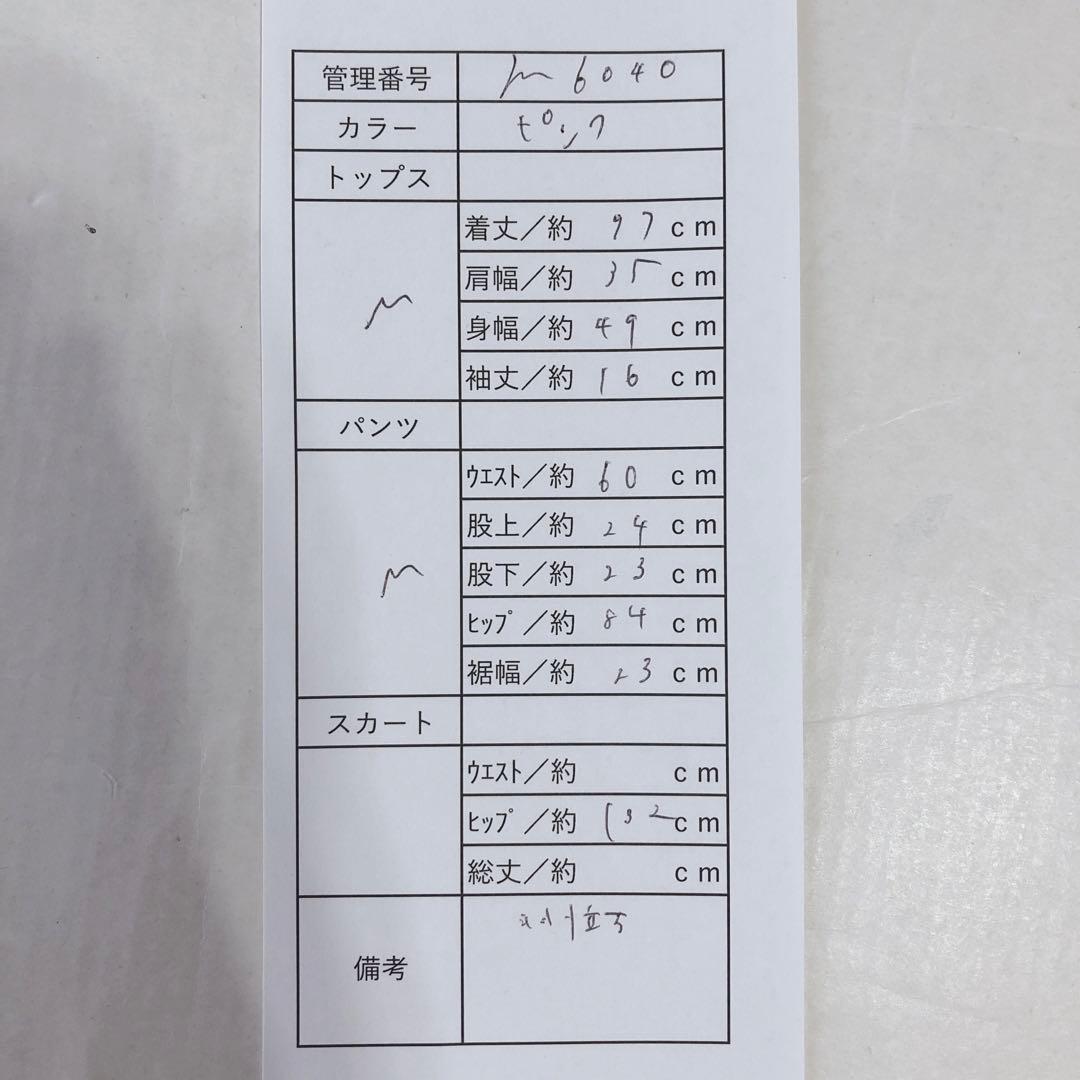 管理番号 m6040
カラー ピンク
トップス
M
着丈／約 97 cm
肩幅／約 35 cm
身幅／約 49 cm
袖丈／約 16 cm
パンツ
M
ウエスト／約 60 cm
股上／約 24 cm
股下／約 23 cm
ヒップ／約 84 cm
裾幅／約 23 cm
スカート
ウエスト／約 cm
ヒップ／約 132 cm
総丈／約 cm
備考